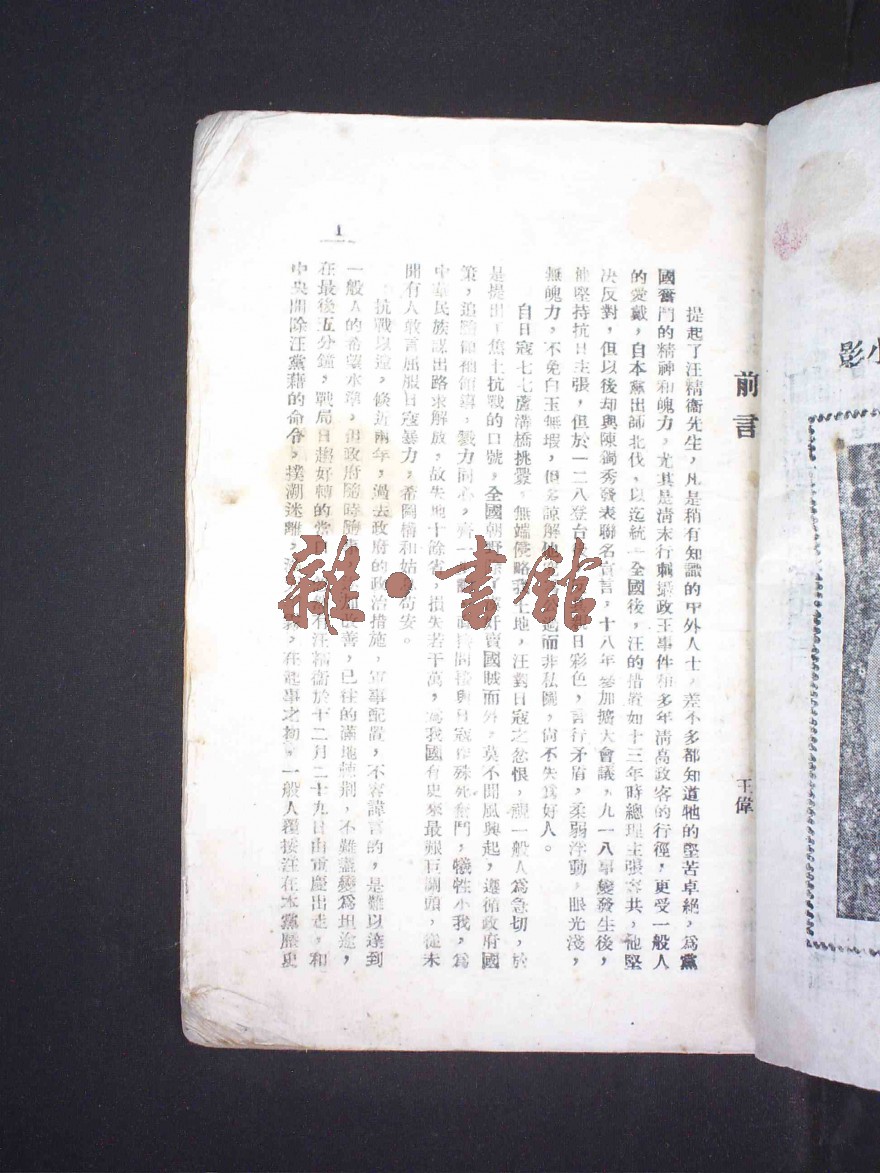 小影
前言
王偉
提起了汪精衞先生，凡是稍有知識的中外人士，差不多都知道牠的堅苦卓絕，爲黨
國奮鬥的精神和魄力，尤其是淸末行刺攝政王事件和多年淸高政客的行徑，更受一般人
的愛戴，自本黨出師北伐，以迄統一全國後，汪的措置如十三年時總理主張容共，他堅
决反對，但以後却與陳獨秀發表聯名宣言，十八年參加擴大會議，九一八事變發生後，
他堅持抗日主張，但於一二八登台 日彩色，言行矛盾，柔弱浮動，眼光淺，
無魄力，不免白玉無瑕，但多諒解他 公 而非私圖，尙不失爲好人。
自日寇七七蘆溝橋挑釁，無端侵略我土地，汪對日寇之忿恨，視一般人爲急切，於
是提出了焦土抗戰的口號，全國朝野除了 奸賣國賊而外，莫不聞風興起，遵循政府國
策，追隨領袖領導，戮力同心，齊一 與日寇作殊死奮鬥，犧牲小我，爲
中華民族謀出路求解放，故失地十餘省，損失若干萬，爲我國有史來最艱巨關頭，從未
聞有人敢言屈服日寇暴力，希圖構和姑 苟安。
抗戰以還，倏近兩年，過去政府的政治措施，軍事配置，不容諱言的，是難以達到
一般人的希望水準，但政府隨時隨 改善，已往的滿地荊 ，不難盡變爲坦途，
在最後五分鐘，戰局日趨好轉的當口 汪精衞於十二月二十九日由重慶出走，和
中央開除汪黨藉的命令，撲溯迷離， 在 事之初，一般人 接汪在本黨歷史
1
雜·書館